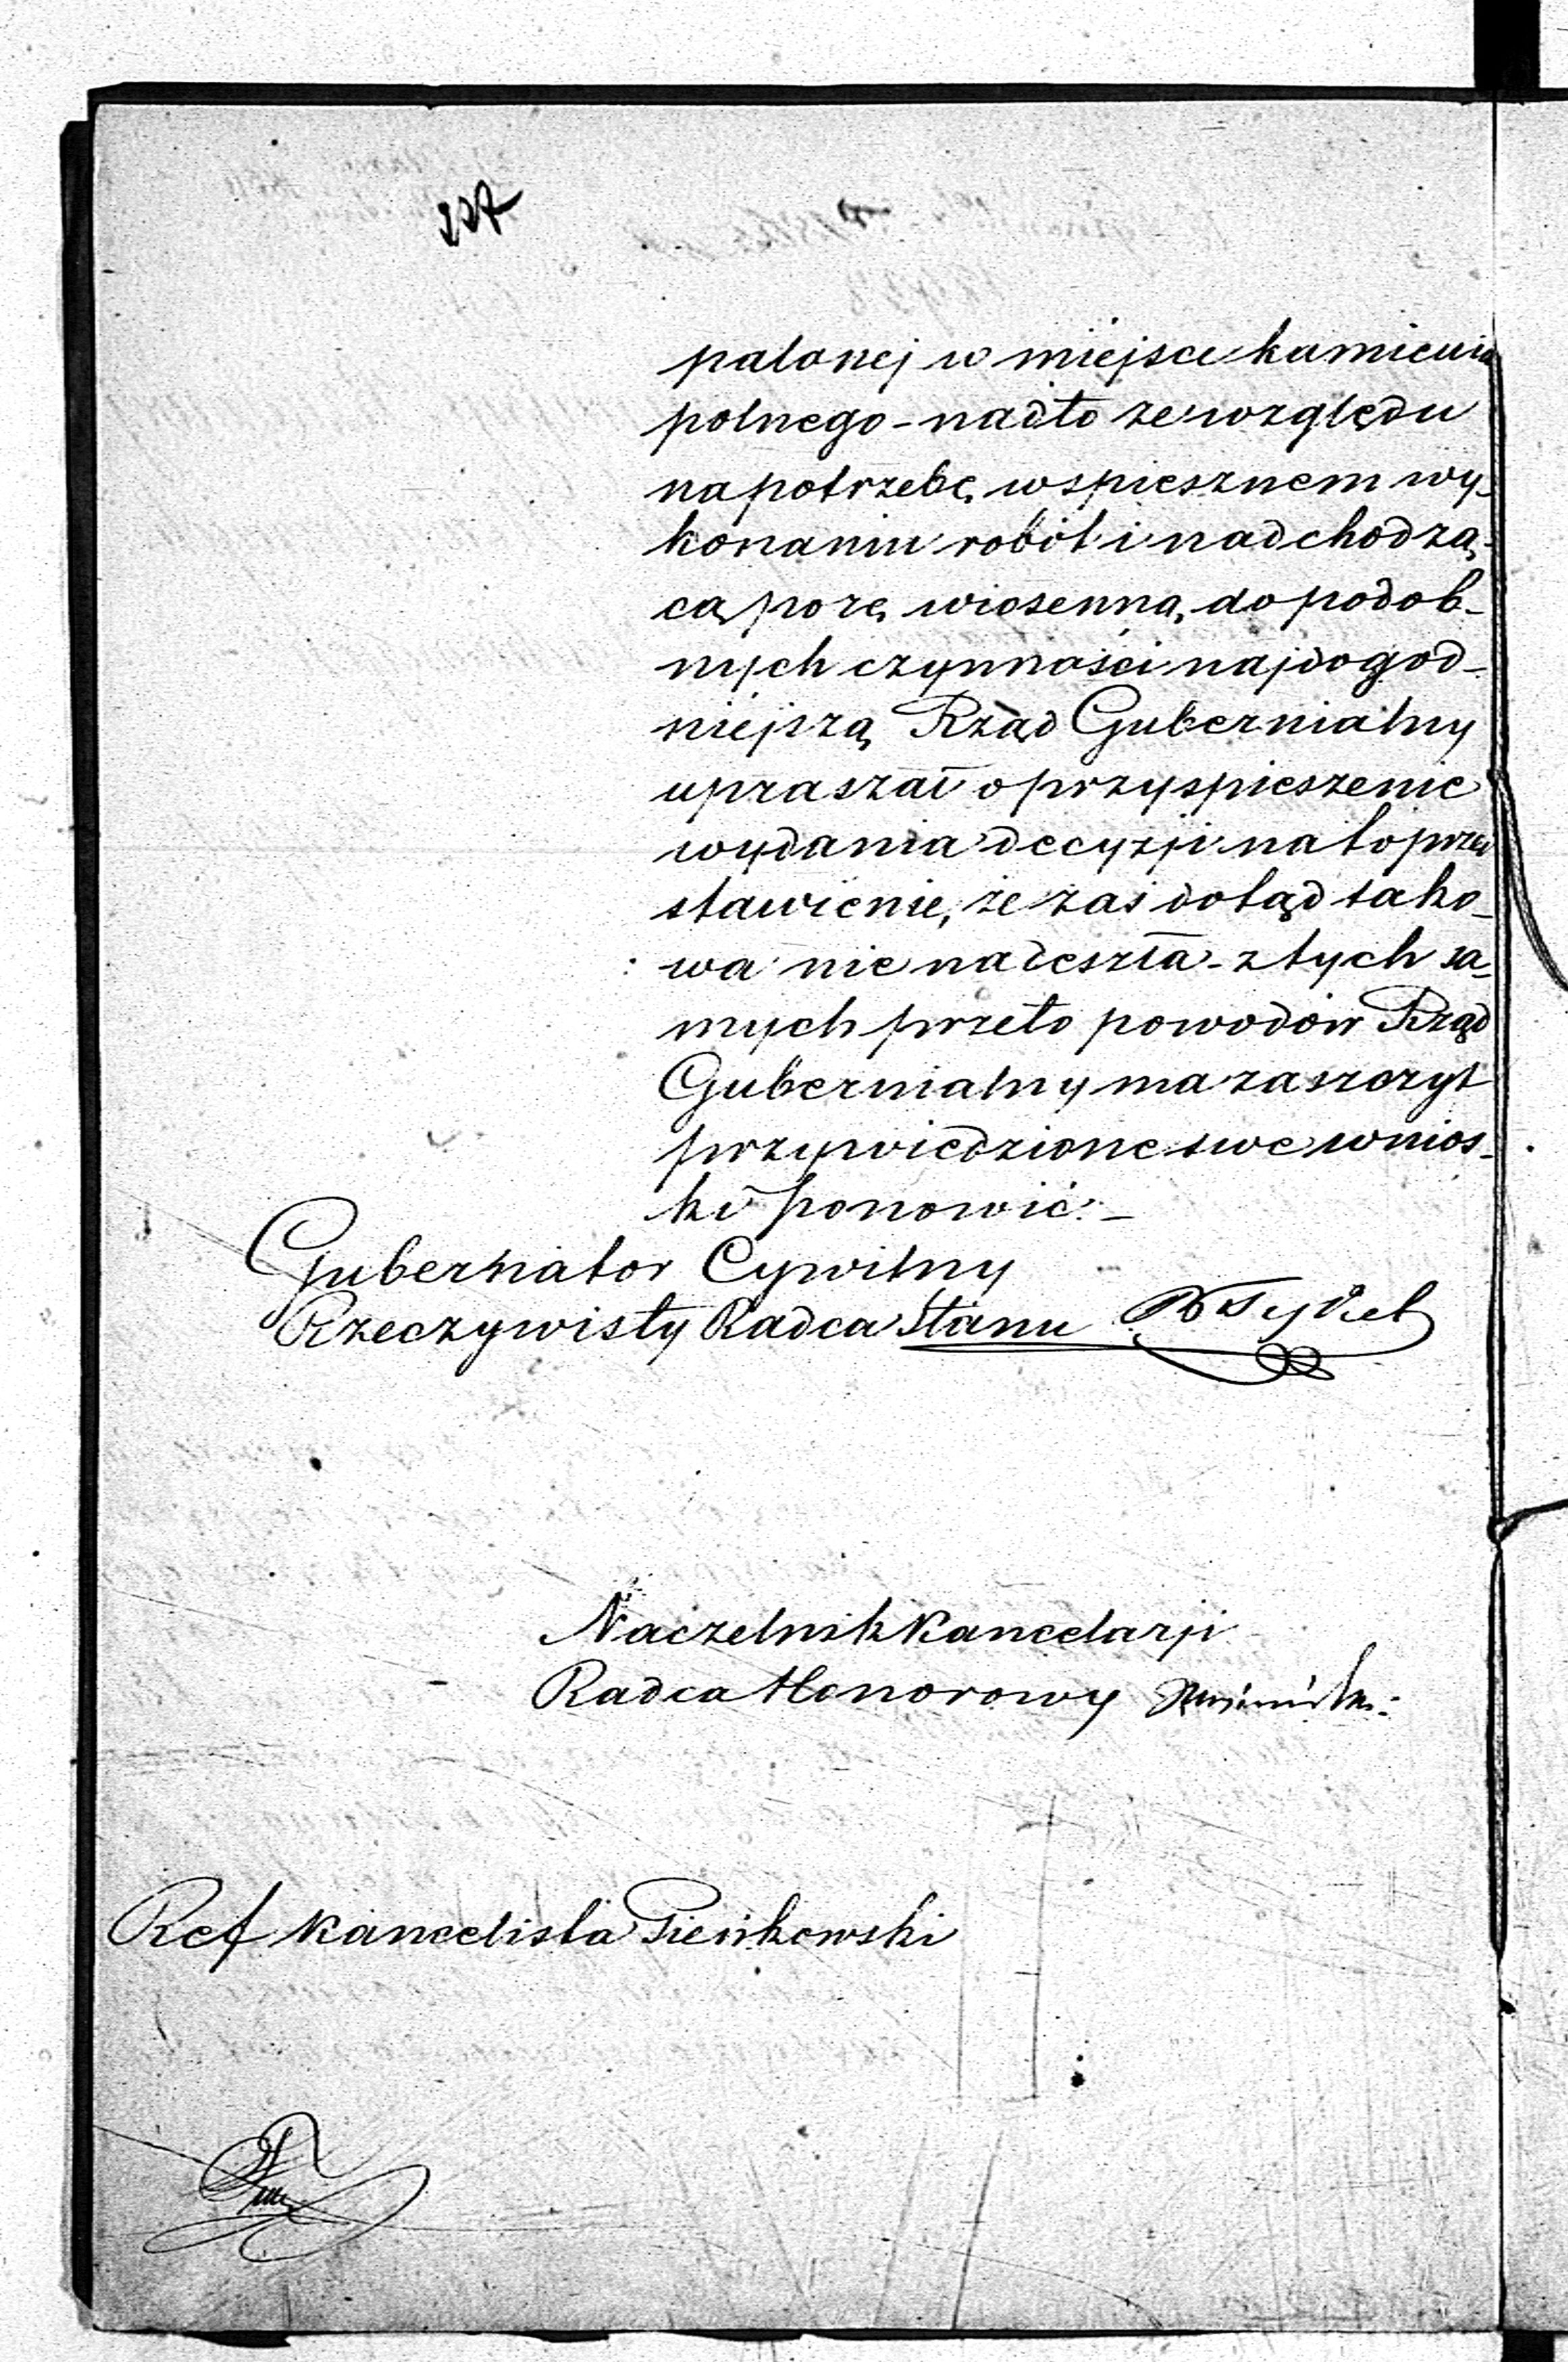 palonej w miejsce kamienia
polnego – nadto ze względu
na potrzebę w spiesznem wy-
konaniu robót i nadchodzą-
cą porę wiosenną, do podob-
nych czynności najdogod-
niejszą Rząd Gubernialny
upraszał o przyspieszenie
wydania decyzji na to przed
stawienie, że zaś dotąd tako-
wa nie nadeszła – z tych sa-
mych przeto powodów Rząd
Gubernialny ma zaszczyt
przywiedzione swe wnios-
ki ponowić. –
Gubernator Cywilny
Rzeczywisty Radca Stanu
Naczelnik Kancelarji
Radca Honorowy
Ref Kancelista Pieńkowski